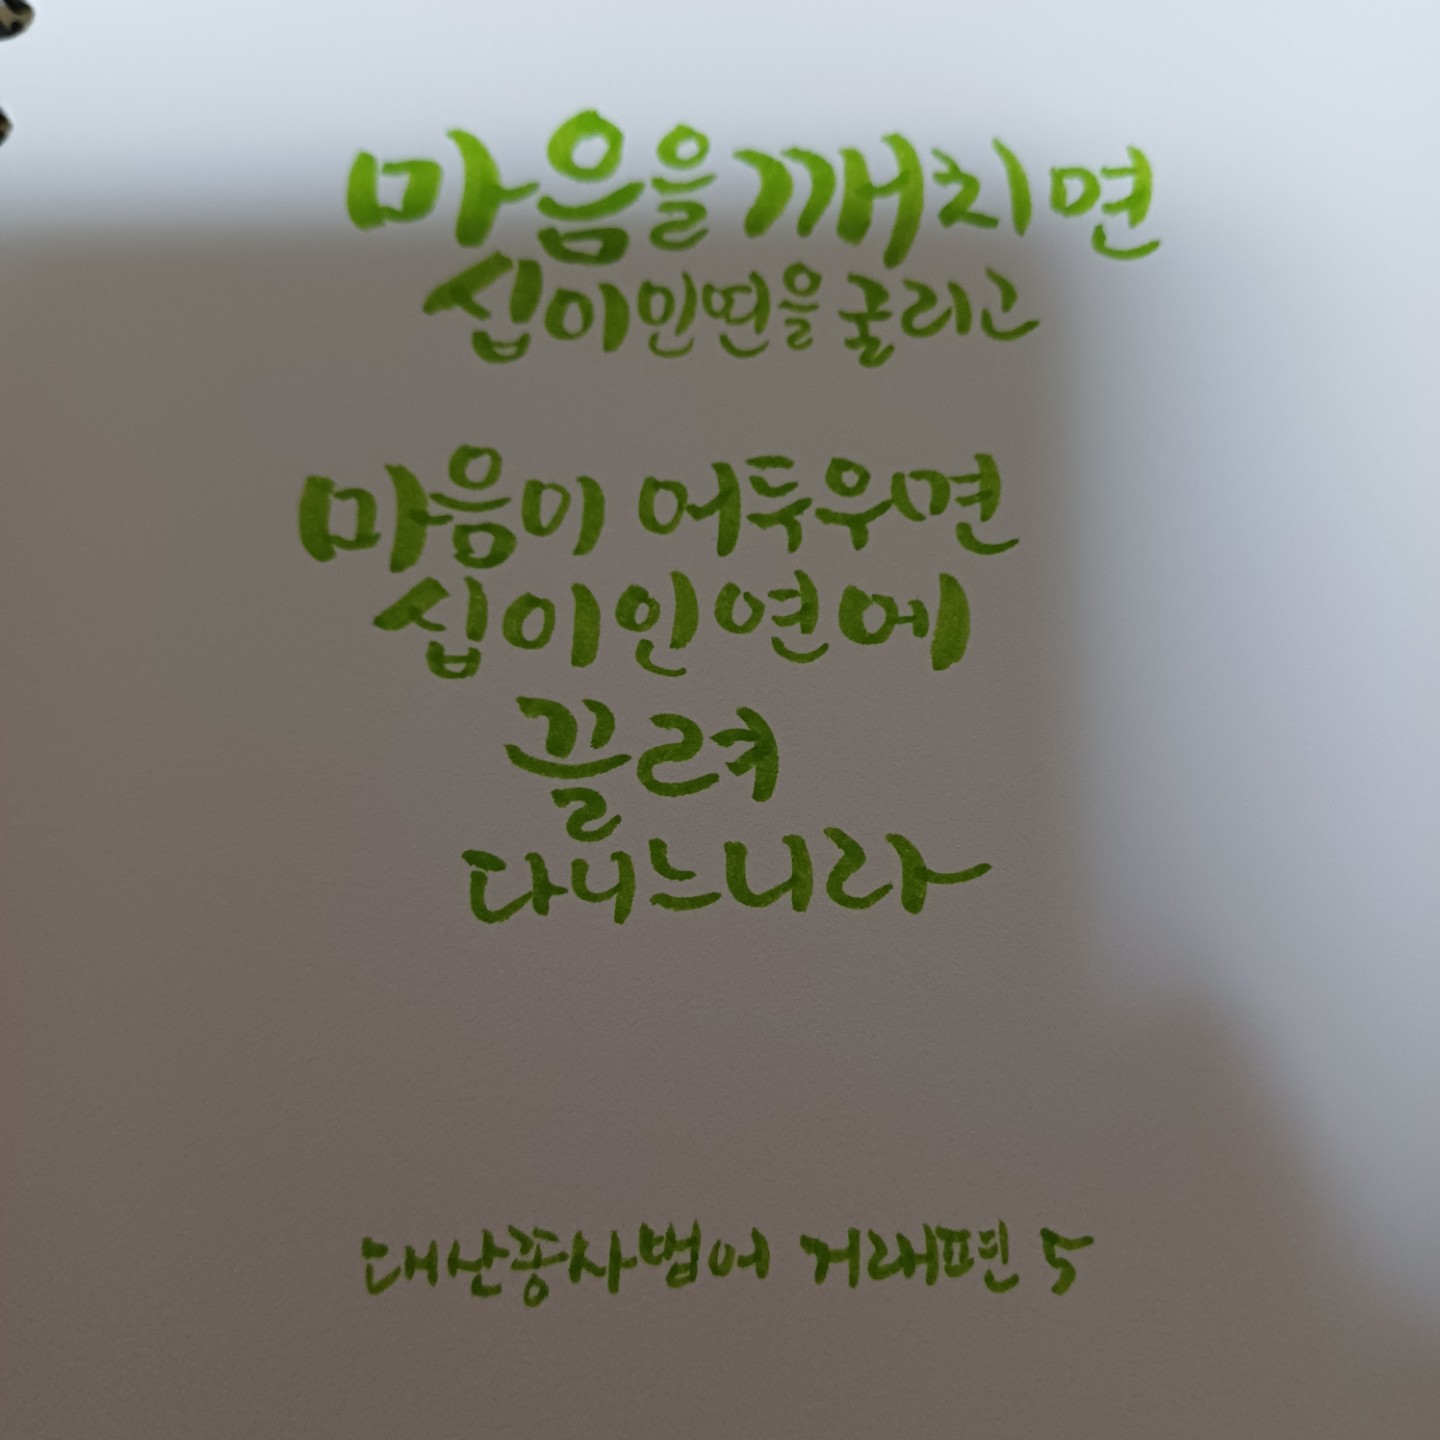 마음을 깨치면
십이인연을 굴리고
마음이 어두우면
십이인연에
끌려
다니느니라
대산종사법어 거래편 5